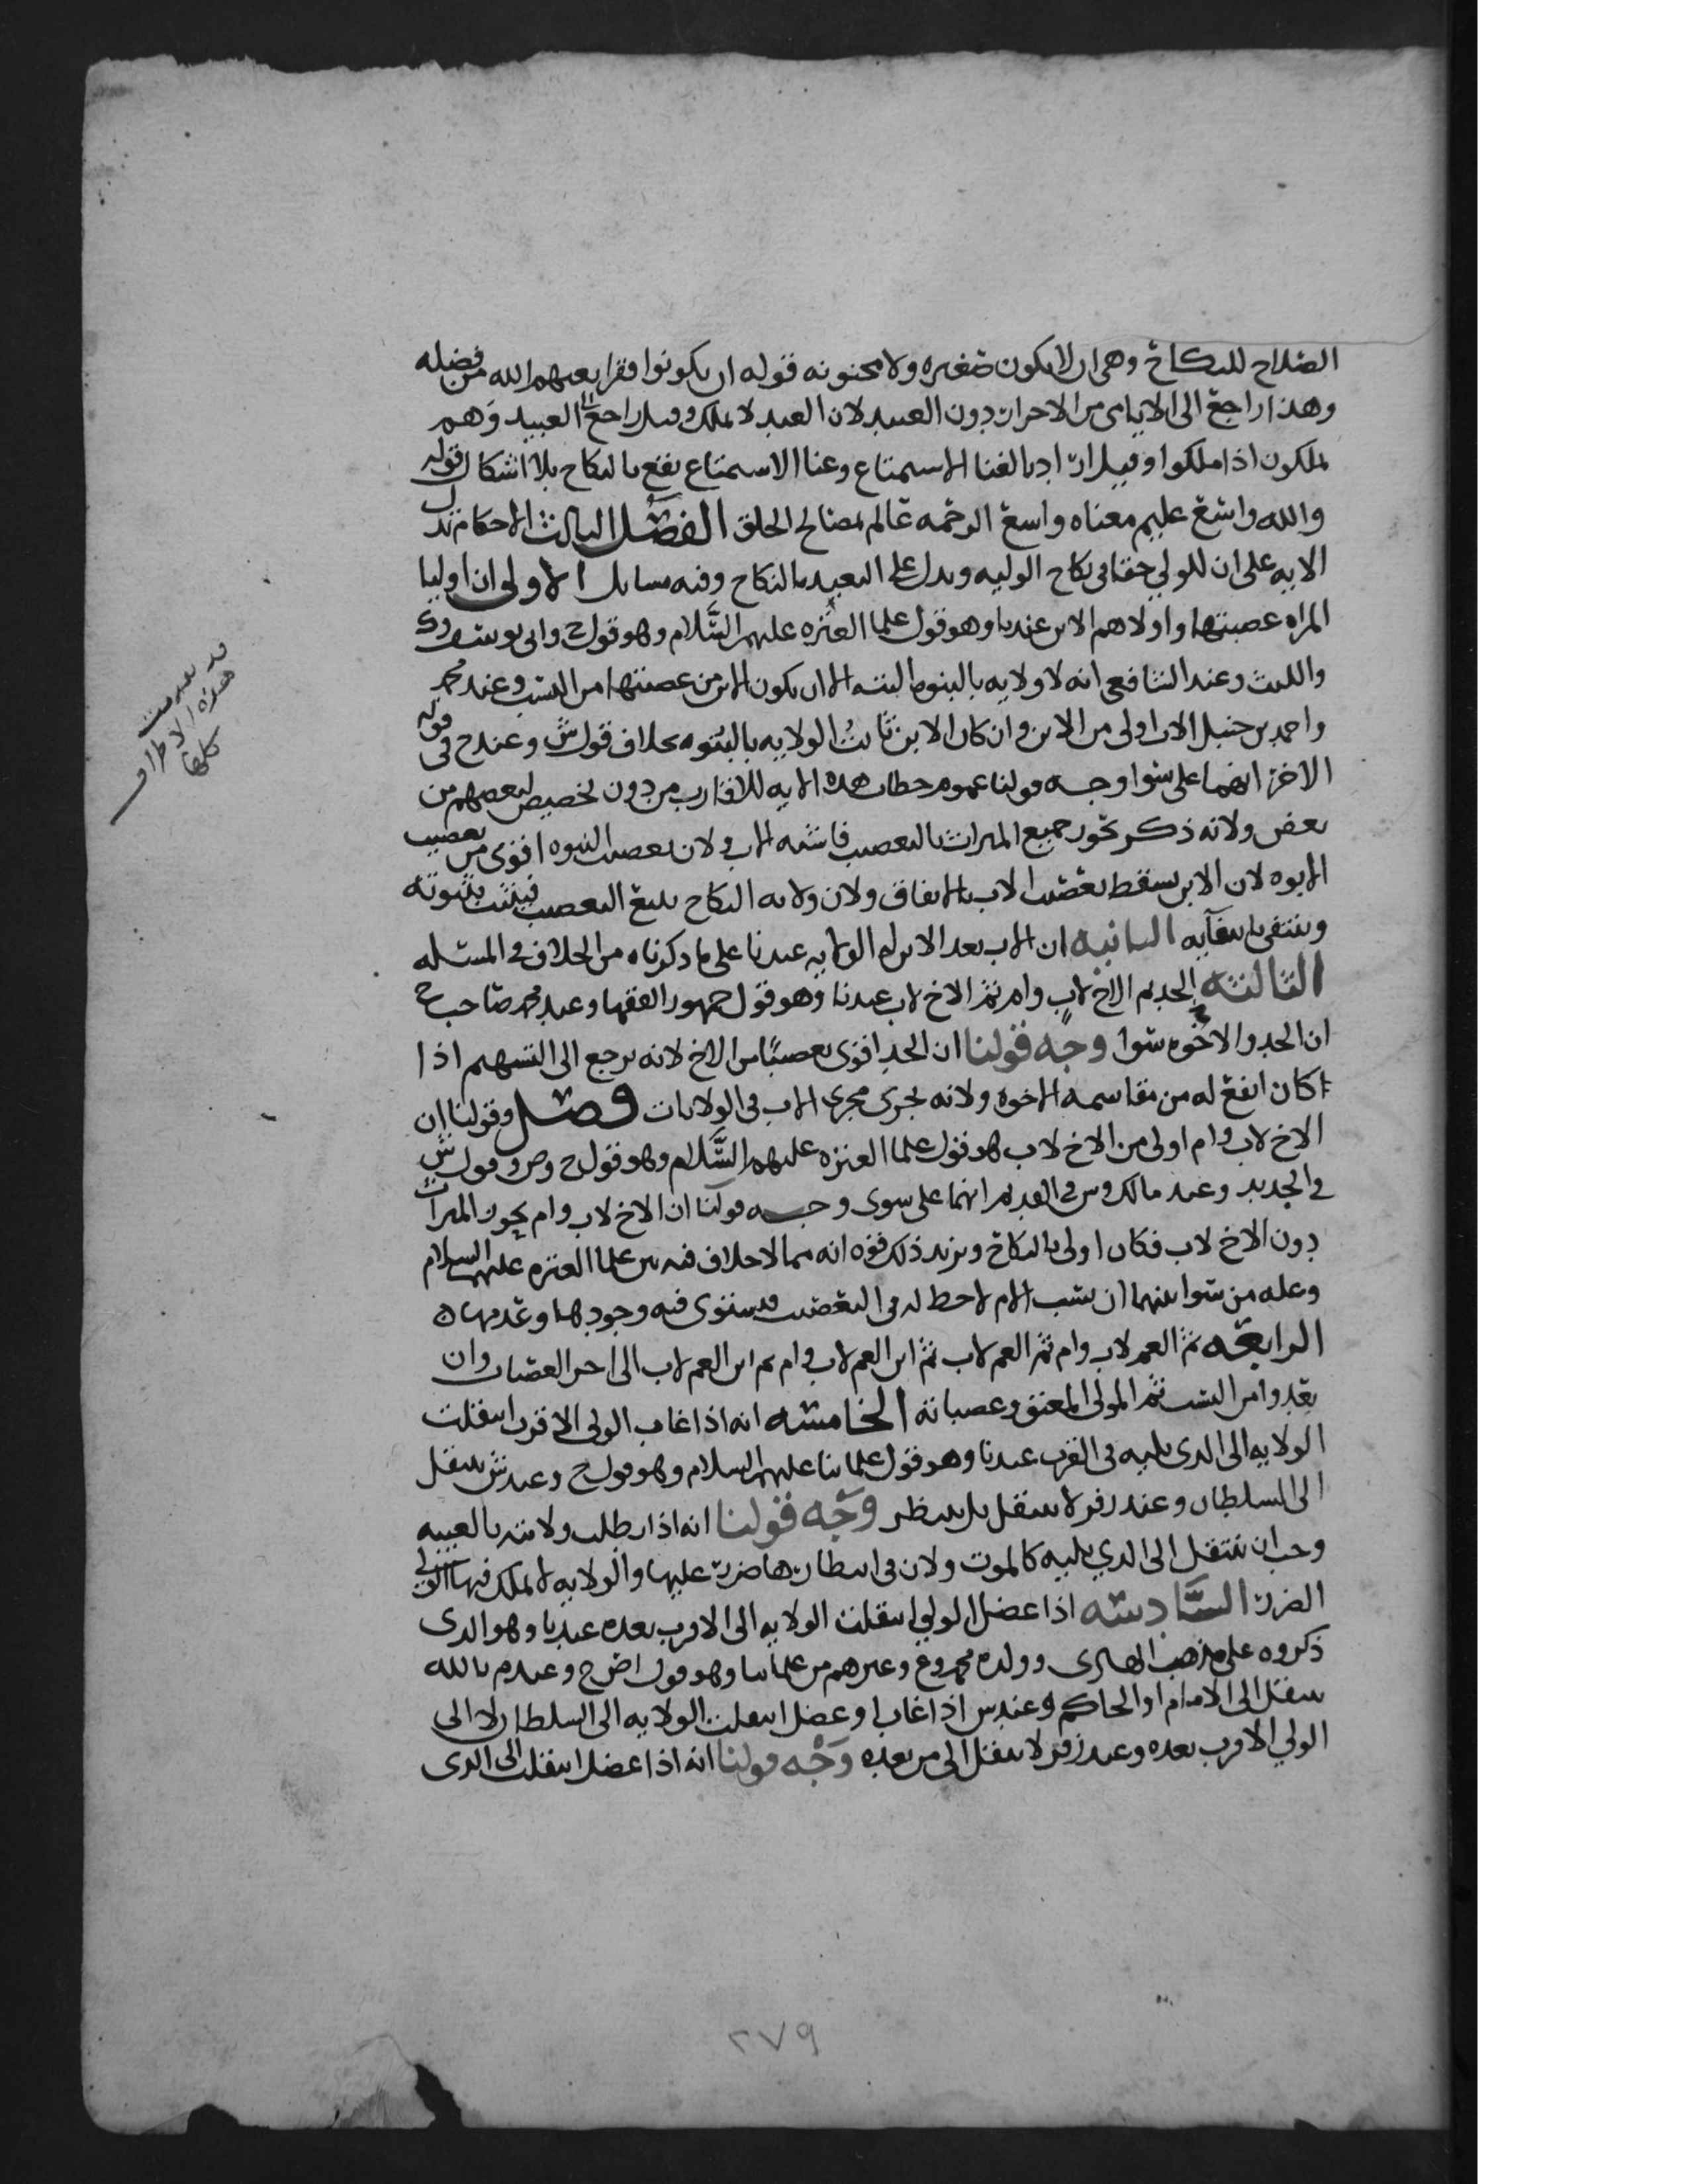 الصلاح للنكاح وهى ان لا يكون صغيره ولا مجنونه قوله ان يكونوا فقرا يغنهم الله من فضله
وهذا راجع الى الايامى من الاحرار دون العبيد لان العبد لا يملك وقيل راجع الى العبيد وهم
يملكون اذا ملكوا وقيل اراد بالغنا الاستمتاع وغنا الاستمتاع يقع بالنكاح بلا اشكال قوله
والله واسع عليم معناه واسع الرحمه عالم بمصالح الخلق الفصل الثالث الاحكام تدل
الايه على ان للولي حقا فى نكاح الوليه ويدل على التعبد بالنكاح وفيه مسايل الاولى ان اوليا
المراه عصبتها واولاهم الابن عندنا وهو قول علما العتره عليهم السلام وهو قول ح وابى يوسف وك
والليث وعند الشافعى انه لا ولايه بالبنوه البته الا ان يكون الابن من عصبتها من النسب وعند محمد
واحمد بن حنبل الاب اولى من الابن وان كان الابن ثابت الولايه بالبنوه بخلاف قول ش وعند ح فى قوله
الاخر انهما على سوا وجه قولنا عموم خطاب هذه الايه للاقارب من دون تخصيص لبعضهم من
بعض ولانه ذكر يحوز جميع الميراث بالتعصيب فاشبه الاب ولان تعصيب البنوه اقوى من تعصيب
الابوه لان الابن يسقط تعصيب الاب بالاتفاق ولان ولايه النكاح تتبع التعصيب فيثبت بثبوته
وينتفى بانتفآيه الثانيه ان الاب بعد الابن له الولايه عندنا على ما ذكرناه من الخلاف فى المسئله
الثالثه الجد ثم الاخ لاب وام ثم الاخ لاب عندنا وهو قول جمهور الفقها وعند محمد صاحب ح
ان الجد والاخوه سوا وجه قولنا ان الجد اقوى تعصيبًا من الاخ لانه يرجع الى التسهيم اذا
كان انفع له من مقاسمه الاخوه ولانه يجرى مجرى الاب فى الولايات فصل وقولنا ان
الاخ لاب وام اولى من الاخ لاب هو قول علما العتره عليهم السلام وهو قول ح وص وقول ش
فى الجديد وعند مالك وش فى القديم انهما على سوى وجه قولنا ان الاخ لاب وام يحوز الميراث
دون الاخ لاب فكان اولى بالنكاح ويزيد ذلك قوه انه مما لا خلاف فيه بين علما العتره عليهم السلام
وعله من سوا بينهما ان نسب الام لا حظ له فى التعصيب فيستوى فيه وجودها وعدمها ه
الرابعه ثم العم لاب وام ثم العم لاب ثم ابن العم لاب وام ثم ابن العم لاب الى اخر العصبات وان
بعدوا من النسب ثم المولى المعتق وعصباته الخامسه انه اذا غاب الولى الاقرب انتقلت
الولايه الى الذى يليه فى القرب عندنا وهو قول علمائنا عليهم السلام وهو قول ح وعند ش ينتقل
الى السلطان وعند زفر لا ينتقل بل ينتظر وجه قولنا انه اذا بطلت ولايته بالغيبه
وجب ان تنتقل الى الذي يليه كالموت ولان فى انتظارها ضرر عليها والولايه لا يملك فيها الولي
الضرر السادسه اذا عضل الولي انتقلت الولايه الى الاقرب بعده عندنا وهو الذى
ذكروه على مذهب الهادى وولده محمد وع وغيرهم من علمائنا وهو قول اص ح وعند م بالله
ينتقل الى الامام او الحاكم وعند ش اذا غاب او عضل انتقلت الولايه الى السلطان لا الى
الولي الاقرب بعده وعند زفر لا ينتقل الى من بعده وجه قولنا انه اذا عضل انتقلت الى الذى
هذه الاطراف
كلها
٢٧٩